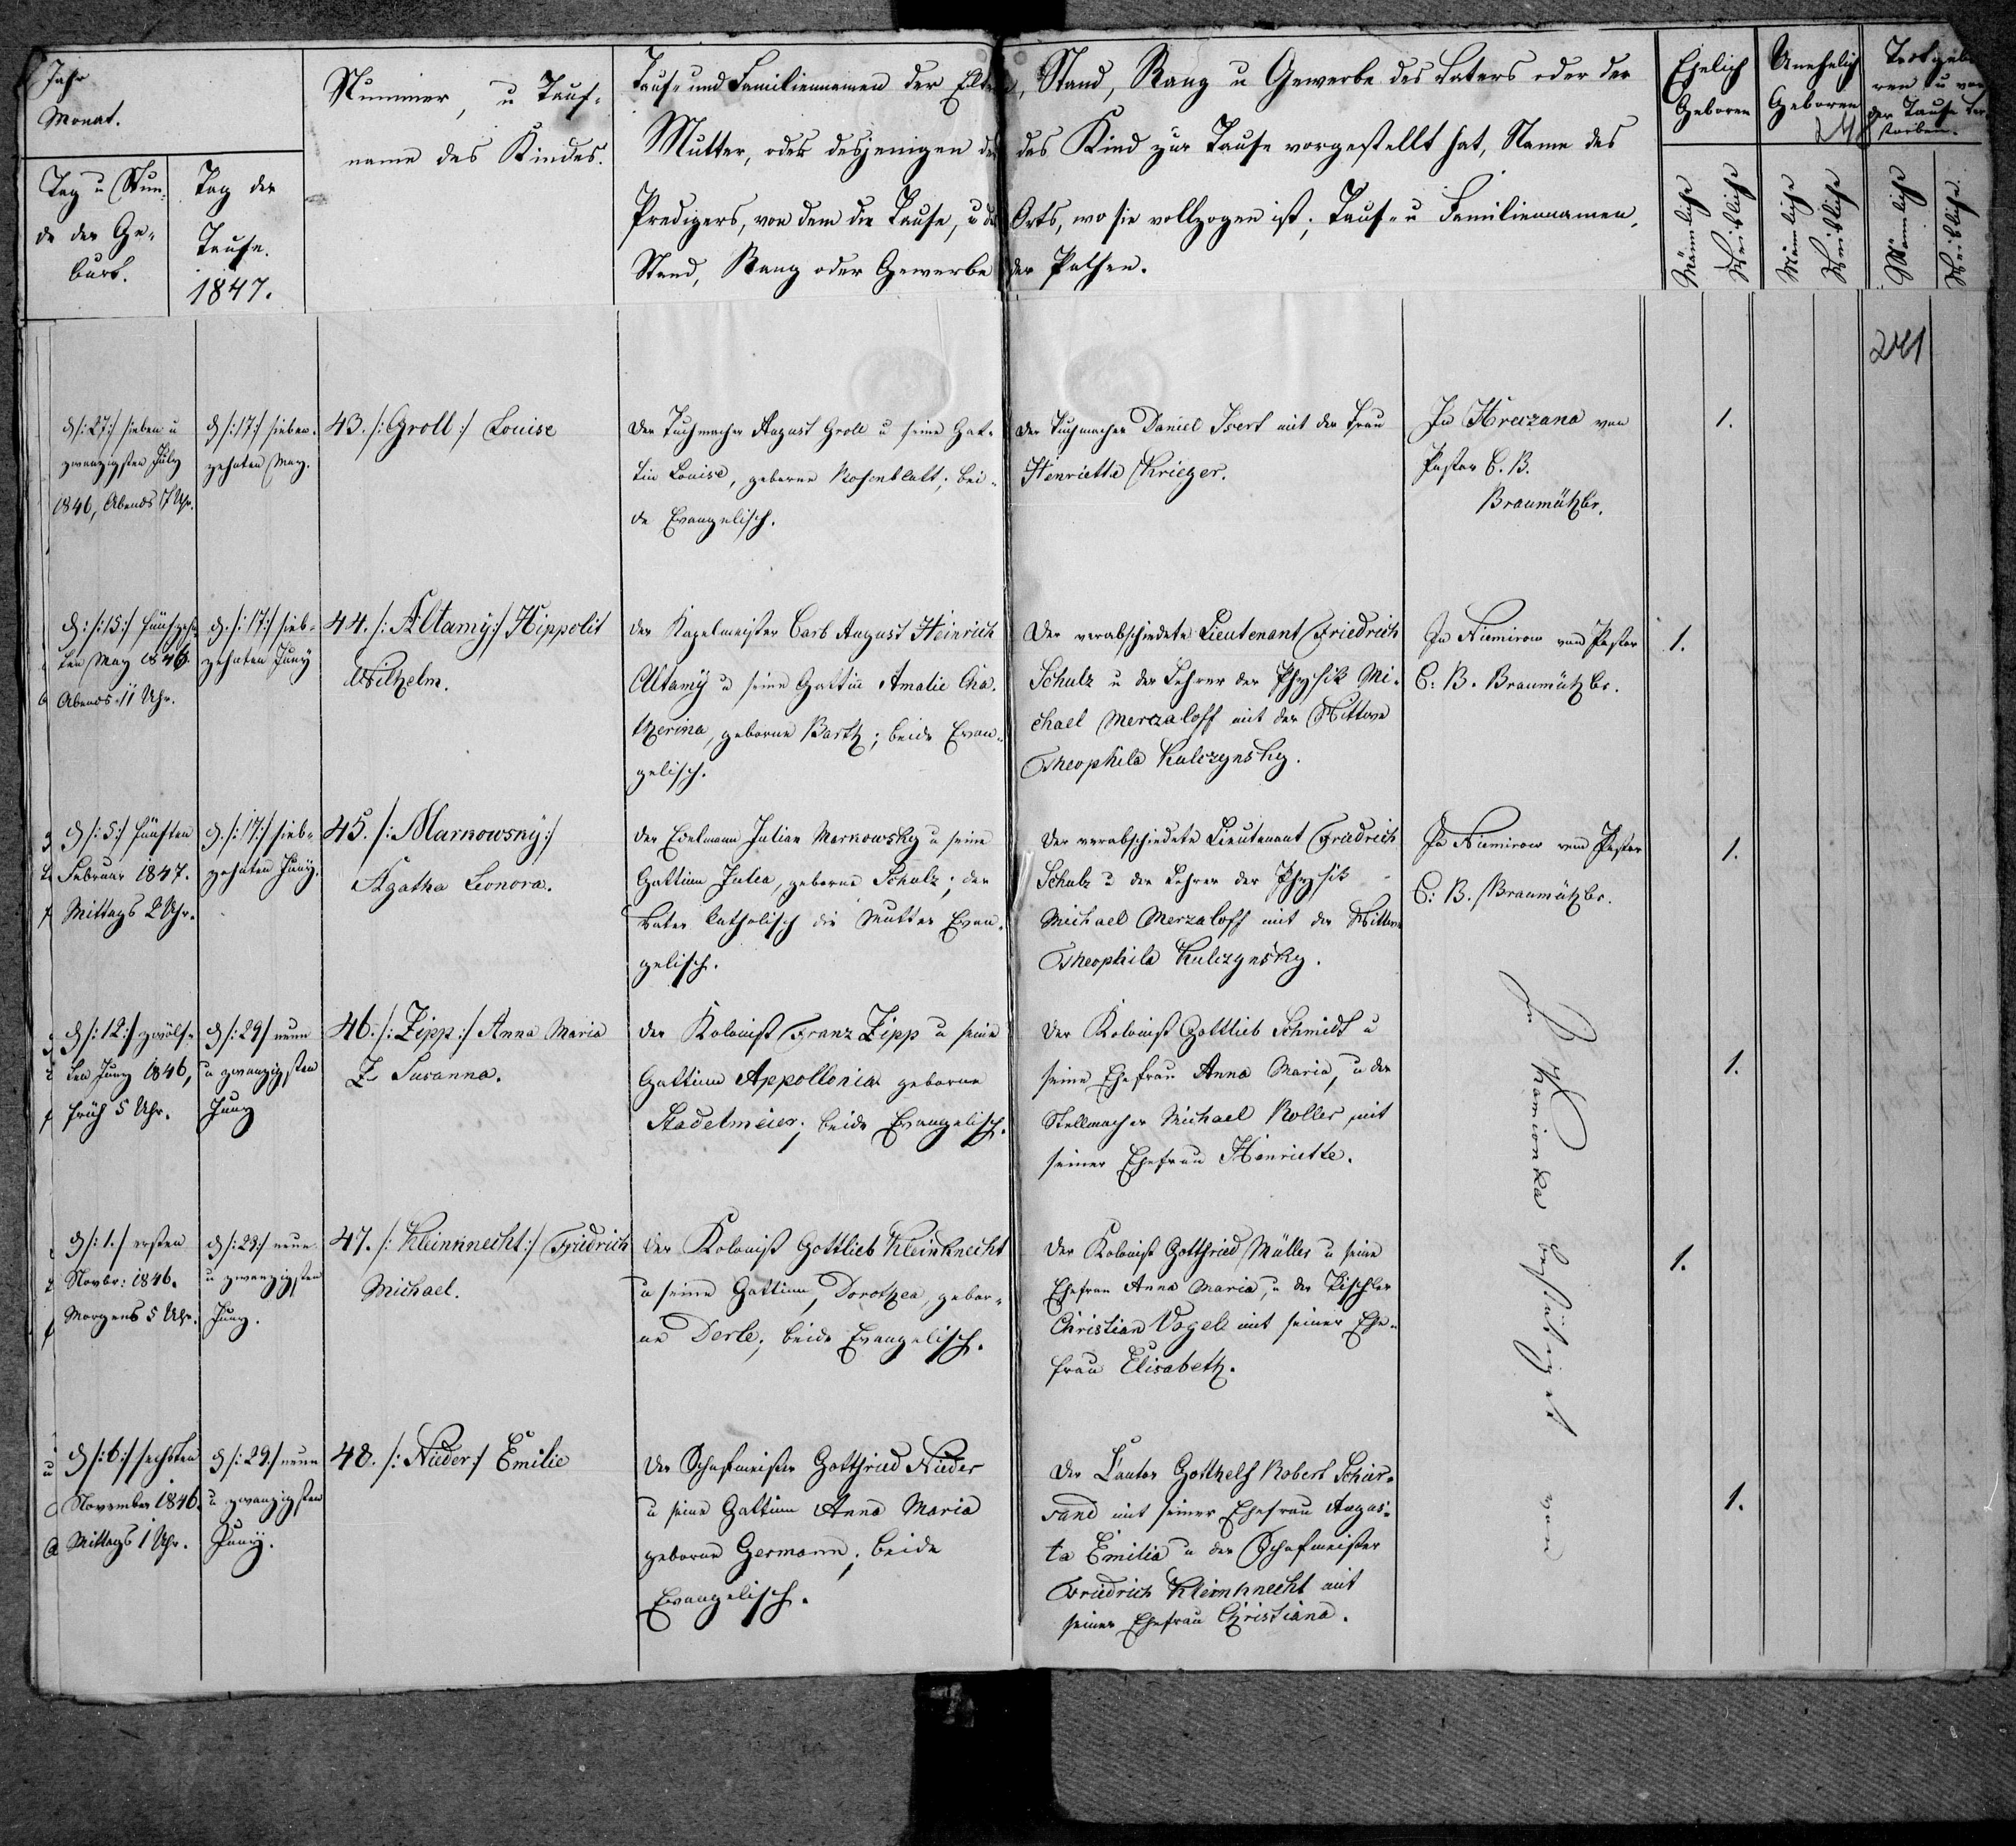 Jahr
Monat.
Tag u Stun-
de der Ge-
burt.
Tag der
Taufe.
1847.
Nummer, u Tauf-
name des Kindes.
Tauf- und Familiennamen der Eltern, Stand, Rang u Gewerbe des Vaters oder der
Mutter, oder desjenigen der das Kind zur Taufe vorgestellt hat, Name des
Predigers, von dem die Taufe, u des Orts, wo sie vollzogen ist; Tauf- u Familiennamen,
Stand, Rang oder Gewerbe der Pathen.
Ehelich
Geboren
Unehelich
Geboren
Todtgebo-
ren u vor
der Taufe ver-
storben.
Männliche
Weibliche
Männliche
Weibliche
Männliche
Weibliche.
241
d /:27:/ sieben u
zwanzigsten July
1846, Abends 7 Uhr.
d /:17:/ sieben-
zehnten May.
43. /: Groll :/ Louise
Der Tuchmacher August Groll u seine Gat-
tin Louise, geborne Rosenblatt; bei-
de Evangelisch.
Der Tuchmacher Daniel Isert mit der Frau
Henrietta Krieger.
In Hreczana von
Pastor C. B.
Braumützbr.
1.
d: /:15:/ fünfzehn
ten May 1846
Abends 11 Uhr.
d. /:17:/ sieb-
zehnten Juny
44. /: Altamÿ :/ Hippolit
Wilhelm.
Der Kapelmeister Carl August Heinrich
Altamÿ u seine Gattin Amalie Cha-
therina, geborne Barth; beide Evan-
gelisch.
Der verabschiedete Lieutenant Friedrich
Schulz u der Lehrer der Physik Mi-
chael Merczaloff mit der Wittwe
Theophila Kulczynsky.
In Niemirow vom Pastor
C: B. Braumützbr.
1.
d /:5:/ fünften
Februar 1847.
Mittags 2 Uhr.
d. /:17:/ sieb-
zehnten Juny.
45. /: Marnowsny :/
Agatha Leonora.
Der Edelmann Julian Marnowsky u seine
Gattinn Julia, geborne Schulz; der
Vater katholisch die Mutter Evan-
gelisch.
Der verabschiedete Lieutenant Friedrich
Schulz u der Lehrer der Physik
Michael Merzaloff mit der Wittwe
Theophila Kulczynsky.
In Niemirow vom Pastor
C: B. Braumützbr.
1.
d /:12:/ zwölf-
ten Juny 1846,
früh 5 Uhr.
d /:29/ neun
u zwanzigsten
Juny
46. /: Zipp :/ Anna Maria
Susanna.
Der Kolonist Franz Zipp u seine
Gattinn Appollonia geborne
Stadelmeier; beide Evangelisch.
Der Kolonist Gottlieb Schmidt u
seine Ehefrau Anna Maria, u der
Stellmacher Michael Koller mit
seiner Ehefrau Henriette.
1.
In Kamionka bestätiget von
d /:1./ ersten
Novbr: 1846.
Morgens 5 Uhr.
d /:29:/ neun
u zwanzigsten
Juny.
47. /: Kleinknecht :/ Friedrich
Michael.
Der Kolonist Gottlieb Kleinknecht
u seine Gattinn, Dorothea, gebor-
ne Derle; beide Evangelisch.
Der Kolonist Gottfried Müller u seine
Ehefrau Anna Maria, u der Tischler
Christian Vogele mit seiner Ehe-
frau Elisabeth.
1.
d /:6:/ sechsten
November 1846.
Mittags 1 Uhr.
d /:29:/ neun
u zwanzigsten
Juny.
48. /: Nieder :/ Emilie
Der Schafmeister Gottfried Nieder
u seine Gattinn Anna Maria
geborne Germann; beide
Evangelisch.
Der Cantor Gotthelf Robert Schur-
rand mit seiner Ehefrau Augus-
ta Emilia u der Schafmeister
Friedrich Kleinknecht mit
seiner Ehefrau Christiana.
1.